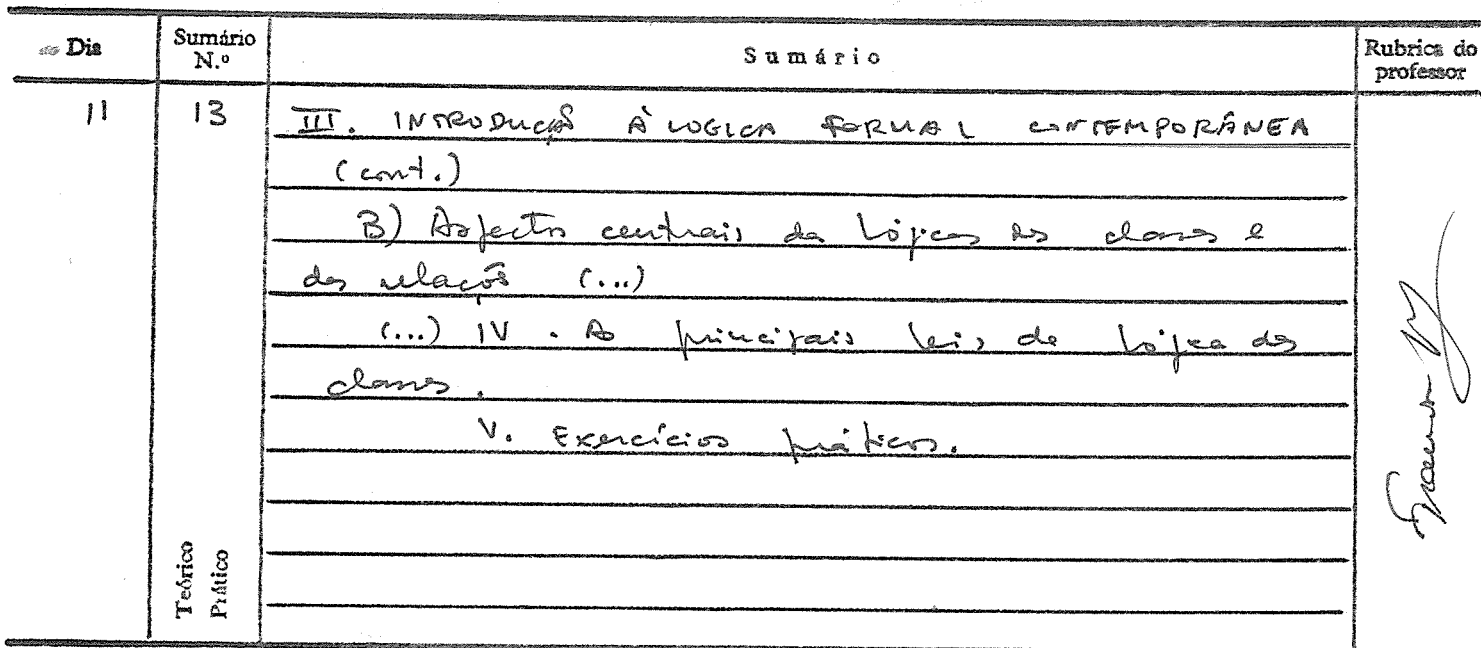 Dia
Sumário N.º
Sumário
Rubrica do professor
11
13
III. INTRODUÇÃO À LOGICA FORMAL CONTEMPORÂNEA
(cont.)
B) Aspectos centrais da Lógica das classes e
das relações (...)
(...) IV. As principais leis da Lógica das
classes.
V. Exercícios práticos.
Teórico
Prático